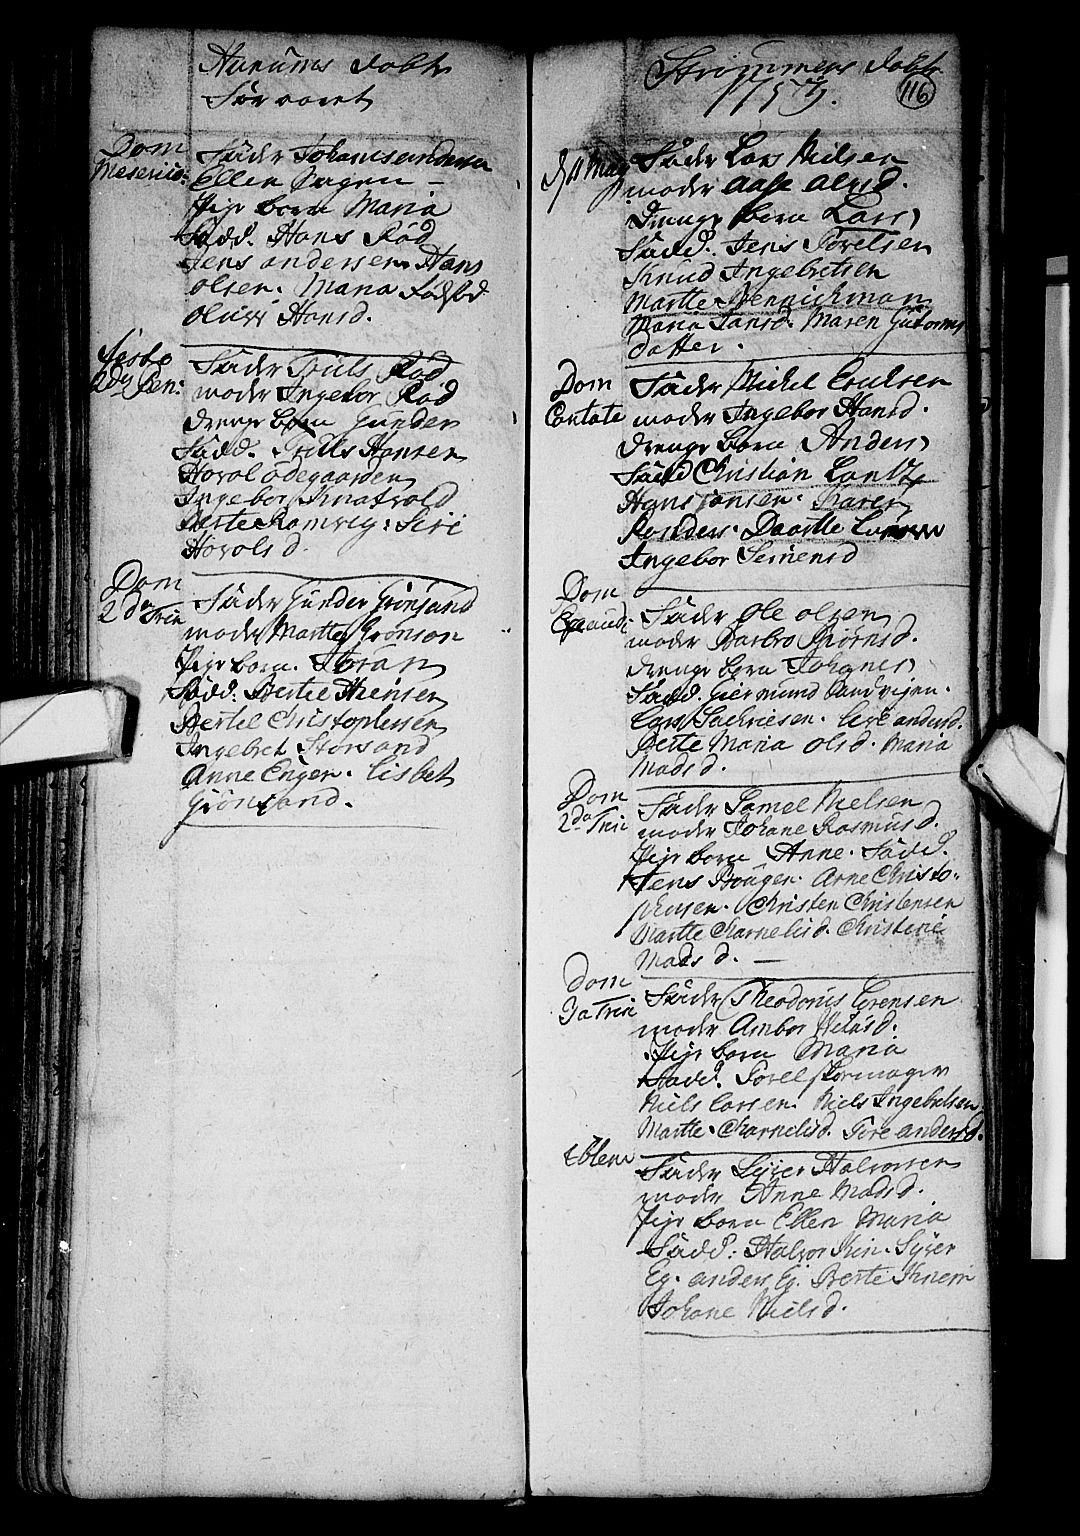 Hurums Døbte
Dom
Miserico:
Fader Johanes andersen
Ellen
Pige barn Maria
Fadd. Hans Rød
Jens andersen Hans
olsen. Maria
Hansd.
Festo
Fader Truls Rød
moder Ingebor Rød
drenge barn Gunder
Fadd. Truls Hansen
Horol ødegaarden
Ingebor Knatvold
Berte Ramvig. Siri
Horolsd.
Dom
2 Da Trin
Fader Gunder Grønsand
moder Marthe Grønson
Pige barn. Joran
Fadd: Bertel Hensen
Bertel Christophersen
Ingebret Storsand
Anne Enger. Lisbet
Grønsand.
Strømmens Døbte
1757.
116
D 11 May
Fader Lars Nielsen
moder Aase olesd.
Drenge barn Lars
Fadd. Jens Torelsen
Knud Ingebretsen
Marthe
Maria Jansd. Maren Gutorms
datter.
Dom
Cantate
Fader Michel Poulsen
moder Ingebor Hansd.
drenge barn Anders
Fadd Christian Lantz
Hans Jansen. Karen
Dorthe
Ingebor Simensd
Dom
Exaudi
Fader Ole olsen
moder Barbro Biørnsd.
drenge barn Johanes
Fadd. Giermund Sandvigen.
Lars Sachriesen. andersd.
Berte Maria olsd. Maria
Madsd.
Dom
2 da Trin
Fader Samel Nielsen
moder Johane Rasmusd.
Pige barn Anne. Fadd.
Jens Bøuger. Arne Christo-
phersen. Christen Christensen
Marthe Karnelisd. Christine
Madsd. —
Dom
3a Trin
Fader Theodorus Lorensen
moder Ambor Nielsd.
Pige barn Maria
Fadd. Torel Stormagen
Niels Larsen. Niels Ingebretsen.
Marthe Karnelisd. Tore andersd.
Fader Syver Halvorsen
moder Anne Madsd.
Pige barn Ellen Maria
Fadd: Halvor Kin. Syver
Eg. anders Eg. Berte
Johane Nielsd.